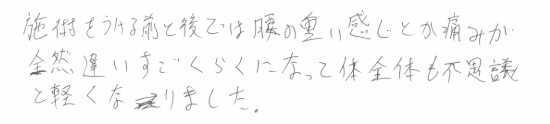 施術をうける前と後では腰の重い感じとか痛みが
全然違いすごくらくになって体全体も不思議
と軽くなりました。